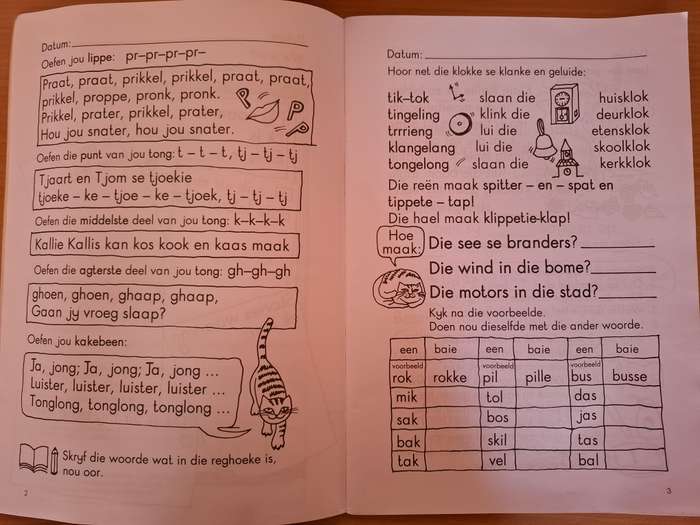 Datum:
Oefen jou lippe: pr–pr–pr–pr–
Praat, praat, prikkel, prikkel, praat, praat,
prikkel, proppe, pronk, pronk.
Prikkel, prater, prikkel, prater,
Hou jou snater, hou jou snater.
P
P
P
Oefen die punt van jou tong: t – t – t, tj – tj – tj
Tjaart en Tjom se tjoekie
tjoeke – ke – tjoe – ke – tjoek, tj – tj – tj
Oefen die middelste deel van jou tong: k–k–k–k
Kallie Kallis kan kos kook en kaas maak
Oefen die agterste deel van jou tong: gh–gh–gh
ghoen, ghoen, ghaap, ghaap,
Gaan jy vroeg slaap?
Oefen jou kakebeen:
Ja, jong; Ja, jong; Ja, jong ...
Luister, luister, luister, luister ...
Tonglong, tonglong, tonglong ...
Skryf die woorde wat in die reghoeke is,
nou oor.
2
Datum:
Hoor net die klokke se klanke en geluide:
tik–tok slaan die huisklok
tingeling klink die deurklok
trrrieng lui die etensklok
klangelang lui die skoolklok
tongelong slaan die kerkklok
Die reën maak spitter – en – spat en
tippete – tap!
Die hael maak klippetie-klap!
Hoe
maak:
Die see se branders?
Die wind in die bome?
Die motors in die stad?
Kyk na die voorbeelde.
Doen nou dieselfde met die ander woorde.
een baie een baie een baie
voorbeeld voorbeeld voorbeeld
rok rokke pil pille bus busse
mik tol das
sak bos jas
bak skil tas
tak vel bal
3